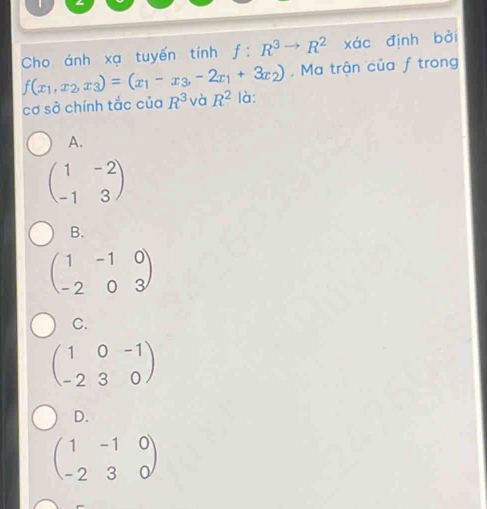 Cho ánh xạ tuyến tính f : R³ → R² xác định bởi
f(x₁, x₂, x₃) = (x₁ - x₃, - 2x₁ + 3x₂) . Ma trận của f trong
cơ sở chính tắc của R³ và R² là:
A.
( 1 -2
-1 3 )
B.
( 1 -1 0
-2 0 3 )
C.
( 1 0 -1
-2 3 0 )
D.
( 1 -1 0
-2 3 0 )